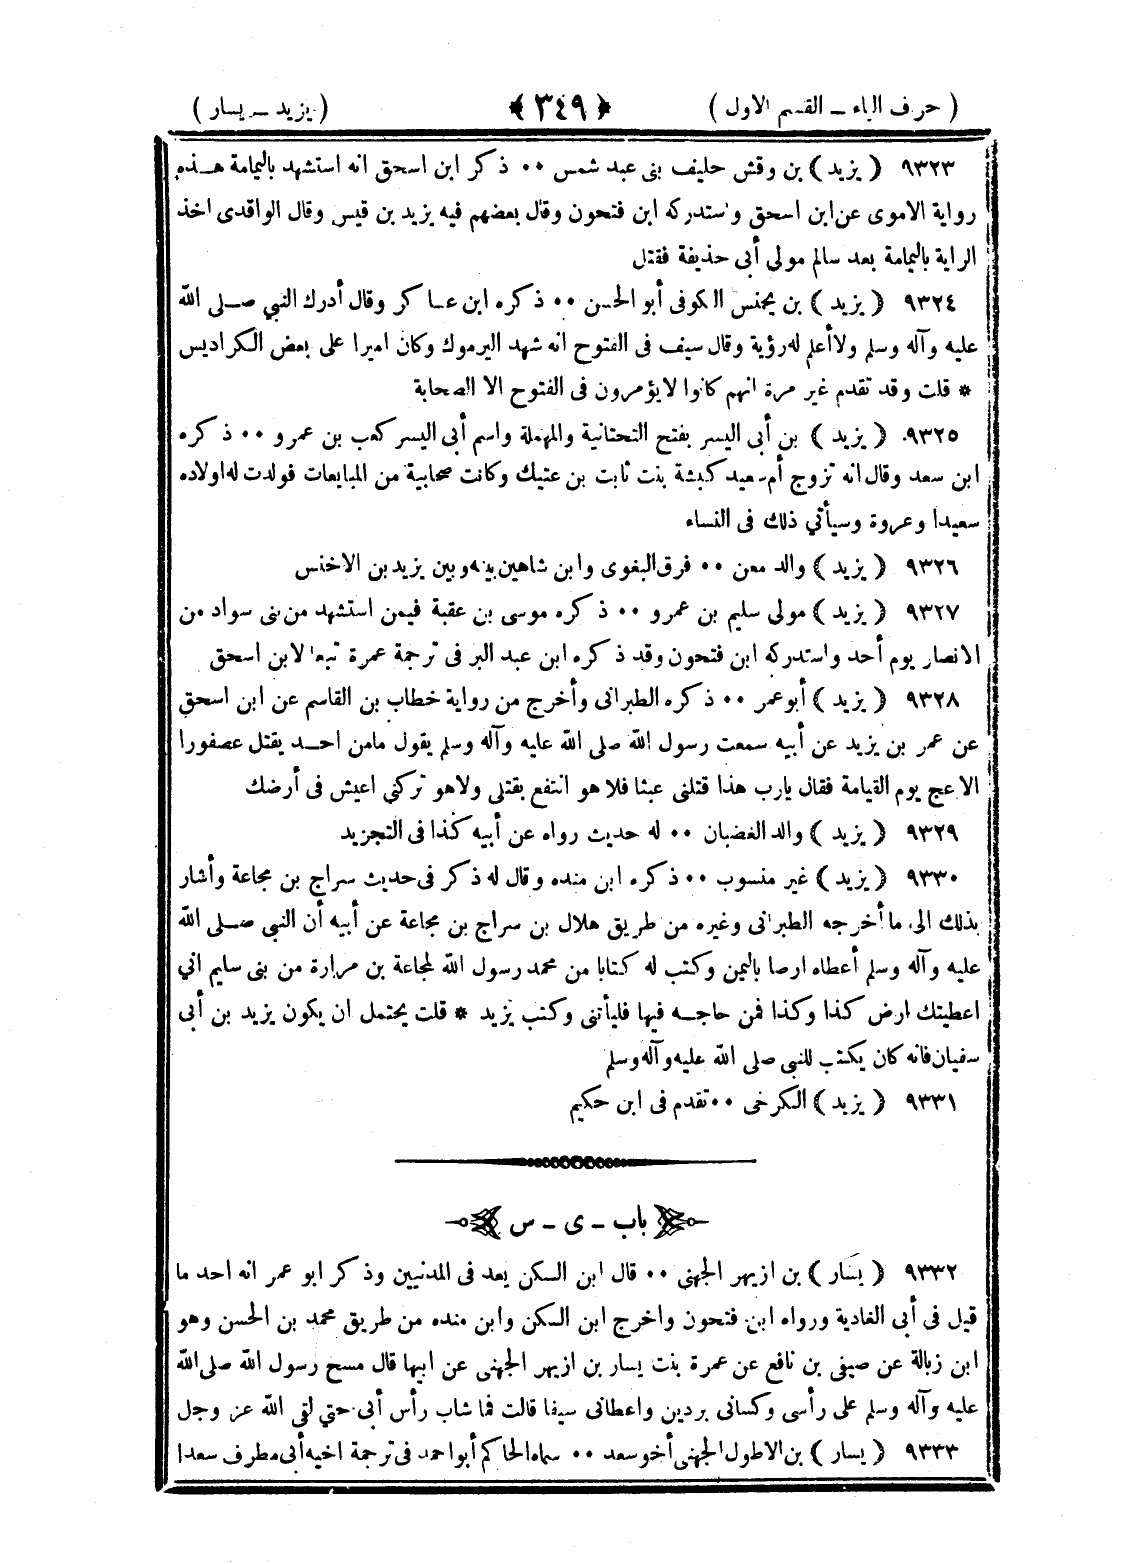 ( حرف الياء ــ القسم الاول ) ﴿ ٣٤٩ ﴾ ( يزيد ــ يسار )
٩٣٢٣ ( يزيد ) بن وقش حليف بنى عبد شمس ٠٠ ذكر ابن اسحق انه استشهد باليمامة هـذه
رواية الاموى عن ابن اسحق واستدركه ابن فتحون وقال بعضهم فيه يزيد بن قيس وقال الواقدى اخذ
الراية باليمامة بعد سالم مولى أبى حذيفة فقتل
٩٣٢٤ ( يزيد ) بن يحنس الكوفى أبو الحسن ٠٠ ذكره ابن عساكر وقال أدرك النبي صلى الله
عليه وآله وسلم ولا أعلم له رؤية وقال سيف فى الفتوح انه شهد اليرموك وكان اميرا على بعض الكراديس
* قلت وقد تقدم غير مرة انهم كانوا لا يؤمرون فى الفتوح الا الصحابة
٩٣٢٥ ( يزيد ) بن أبى اليسر بفتح التحتانية والمهملة واسم أبى اليسر كعب بن عمرو ٠٠ ذكره
ابن سعد وقال انه تزوج أم سعيد كبشة بنت ثابت بن عتيك وكانت صحابية من المبايعات فولدت له اولاده
سعيدا وعروة وسيأتي ذلك فى النساء
٩٣٢٦ ( يزيد ) والد معن ٠٠ فرق البغوى وابن شاهين بينه وبين يزيد بن الاخنس
٩٣٢٧ ( يزيد ) مولى سليم بن عمرو ٠٠ ذكره موسى بن عقبة فيمن استشهد من بنى سواد من
الانصار يوم أحد واستدركه ابن فتحون وقد ذكره ابن عبد البر فى ترجمة عمرة تبعا لابن اسحق
٩٣٢٨ ( يزيد ) أبو عمر ٠٠ ذكره الطبرانى وأخرج من رواية خطاب بن القاسم عن ابن اسحق
عن عمر بن يزيد عن أبيه سمعت رسول الله صلى الله عليه وآله وسلم يقول مامن احـد يقتل عصفورا
الا عج يوم القيامة فقال يارب هذا قتلنى عبثا فلا هو انتفع بقتلى ولا هو تركني اعيش فى أرضك
٩٣٢٩ ( يزيد ) والد الغضبان ٠٠ له حديث رواه عن أبيه كذا فى التجزيد
٩٣٣٠ ( يزيد ) غير منسوب ٠٠ ذكره ابن منده وقال له ذكر فى حديث سراج بن مجاعة وأشار
بذلك الى ما أخرجه الطبرانى وغيره من طريق هلال بن سراج بن مجاعة عن أبيه أن النبي صلى الله
عليه وآله وسلم أعطاه ارضا باليمن وكتب له كتابا من محمد رسول الله لمجاعة بن مرارة من بنى سليم اني
اعطيتك ارض كذا وكذا فمن حاجـه فيها فليأتنى وكتب يزيد * قلت يحتمل ان يكون يزيد بن أبى
سفيان فانه كان يكتب للنبي صلى الله عليه وآله وسلم
٩٣٣١ ( يزيد ) الكرخى ٠٠ تقدم فى ابن حكيم
باب ــ ى ــ س
٩٣٣٢ ( يسار ) بن ازيهر الجهنى ٠٠ قال ابن السكن يعد فى المدنيين وذكر ابو عمر انه احد ما
قيل فى أبى الغادية ورواه ابن فتحون واخرج ابن السكن وابن منده من طريق محمد بن الحسن وهو
ابن زبالة عن صيفى بن نافع عن عمرة بنت يسار بن ازيهر الجهنى عن ابيها قال مسح رسول الله صلى الله
عليه وآله وسلم على رأسى وكسانى بردين واعطانى سيفا قالت فما شاب رأس أبى حتي لقى الله عز وجل
٩٣٣٣ ( يسار ) بن الاطول الجهنى أخو سعد ٠٠ سماه الحاكم أبو احمد فى ترجمة اخيه أبى مطرف سعدا